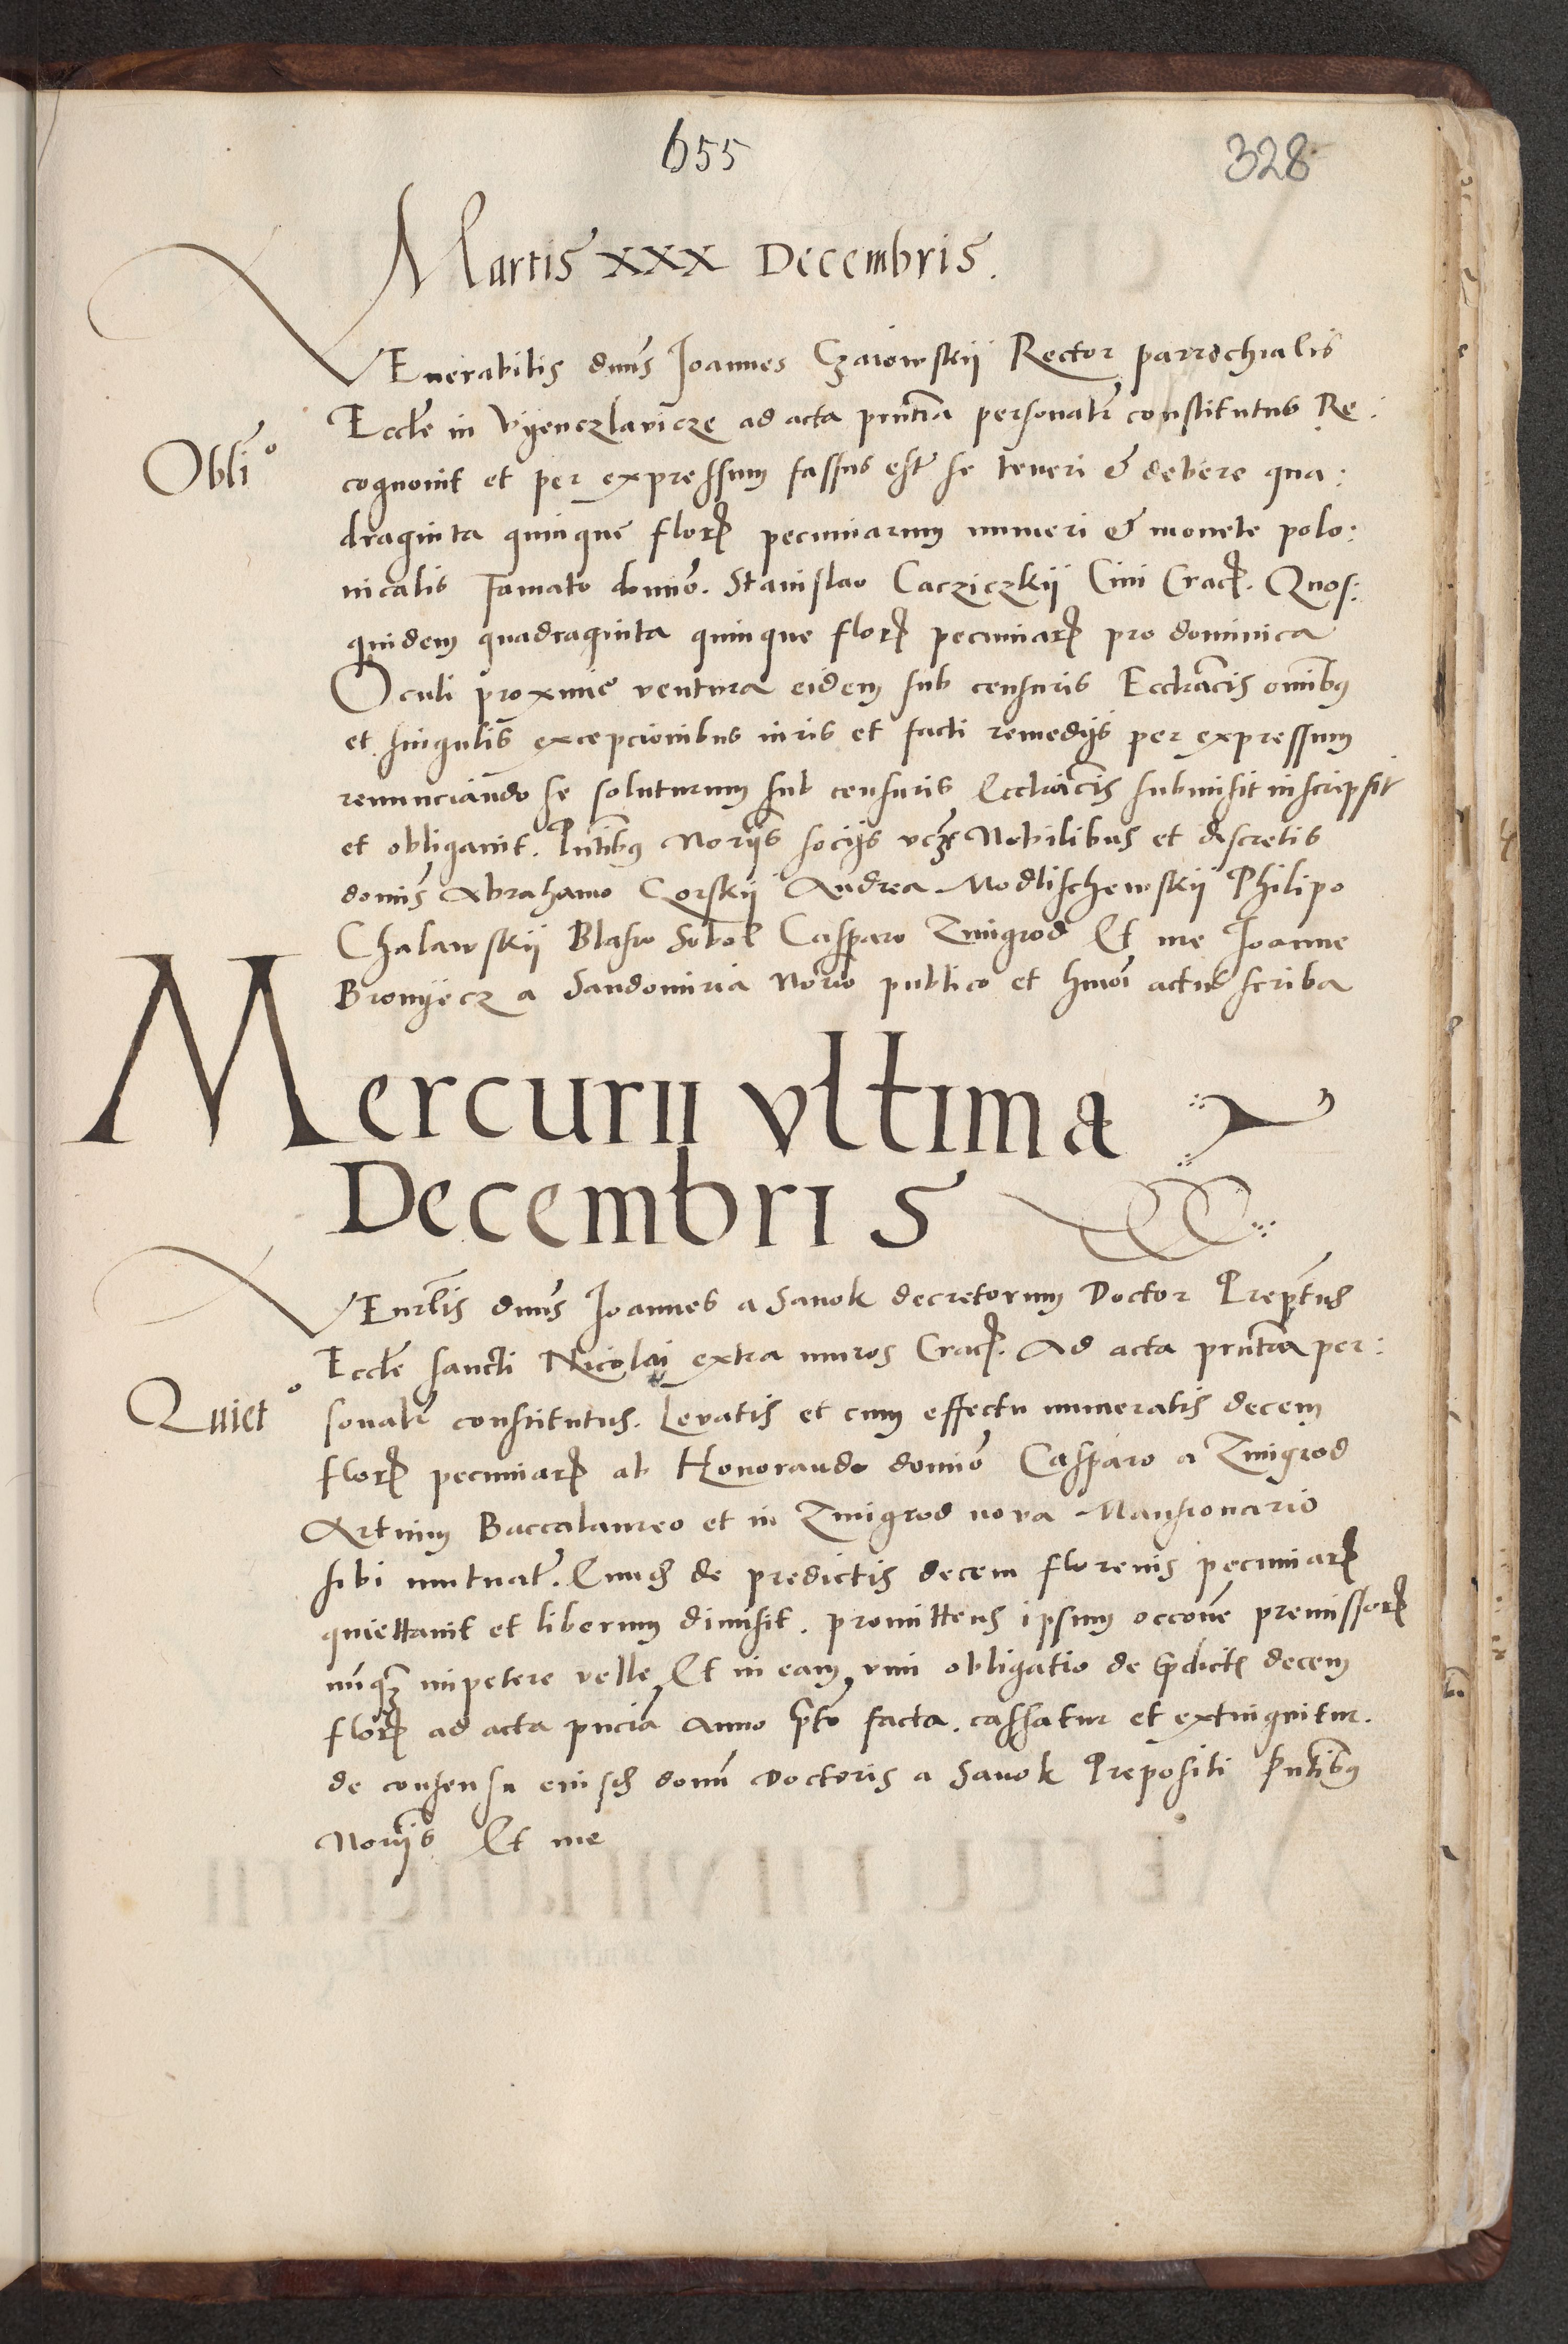 655
328
Martis xxx Decembris.
VEnerabilis dnus Joannes Czaiowskij Rector parrochialis
Eccle in Vyenczlavicze ad acta pntia personalr constitutus Re:
Oblio
cognovit et per expressum fassus est se teneri & debere qua:
draginta quinque flor pecuniarum numeri & monete polo:
nicalis Famato domio. Stanislao Cacziczkij Civi Crac. Quos:
quidem quadraginta quinque flor pecuniar pro dominica
Oculi proxime ventura eidem sub censuris Eccliacis omibus
et singulis excepcionibus iuris et facti remedijs per expressum
renunciando se soluturum sub censuris Eccliacis submisit inscripsit
et obligavit. Pntibus Norijs socijs vcz Nobilibus et discretis
domis Abrahamo Gorskij Andrea Modlischewskij Philipo
Chalawskij Blasio Sobol Casparo Zmigrod Et me Joanne
Bronyecz a Sandomiria Norio publico et hmoi actus scriba
Mercurii vltima
Decembris
VEnrlis dnus Joannes a Sanok decretorum Doctor Prepetus
Eccle sancti Nicolai extra muros Crac. Ad acta pntia per:
Quieto
sonalr constitutus. Levatis et cum effectu numeratis decem
flor pecuniar ab Honorando domio Casparo a Zmigrod
Artium Baccalaureo et in Zmigrod nova Mansionario
sibi mutuat. Eund de predictis decem florenis pecuniar
quiettavit et liberum dimisit. promittens ipsum occone premissor
nunq impetere velle Et in eam vim obligatio de pdictis decem
flor ad acta pncia Anno pnto facta. cassatur et extinguitur.
de consensu eiusd domi Doctoris a Sanok Prepositi Pntibus
Norijs Et me